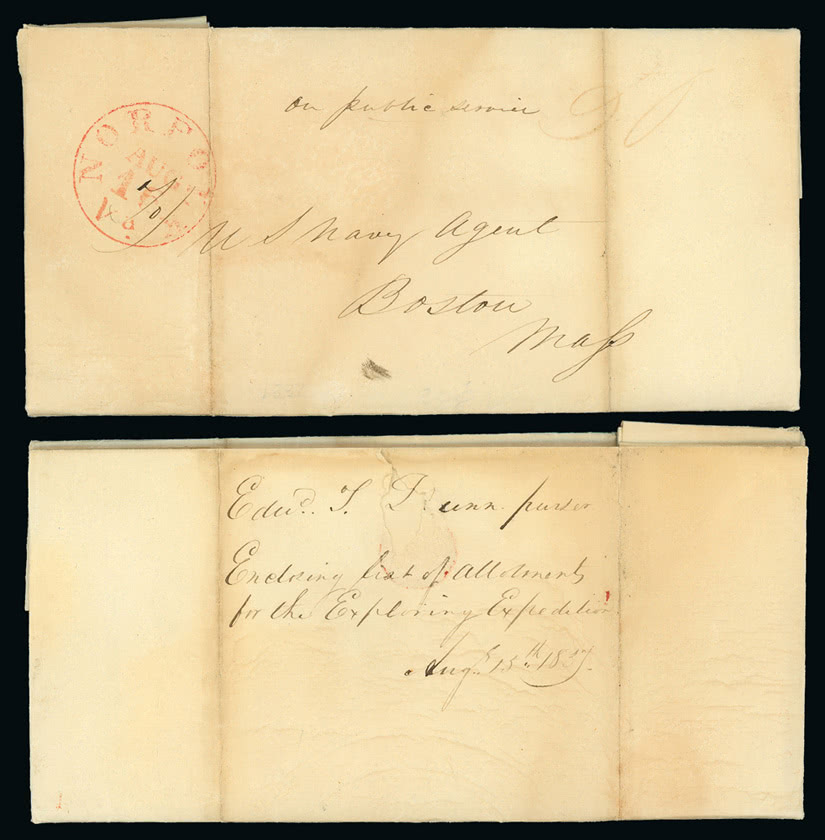 on public service
NORFOLK
AUG
Va.
To
U S Navy Agent
Boston
Mass
Edwd. T. Dunn purser
Enclosing list of allotments
for the Exploring Expedition
Augt. 15th. 1837.